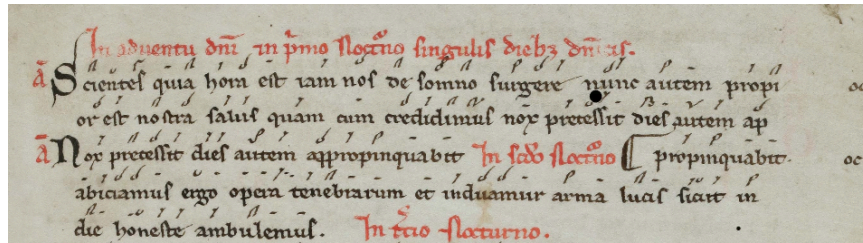 In adventu dnī in p̄mo Noctn̄o singulis diebꝫ dn̄icis.
ā Scientes quia hora est iam nos de somno surgere nunc autem propi
or est nostra salus quam cum credidimus nox precessit dies autem ap
ā Nox precessit dies autem appropinquabit In scd̄o Noctn̄o propinquabit.
abiciamus ergo opera tenebrarum et induamur arma lucis sicut in
die honeste ambulemus. In t̄cio Nocturno.